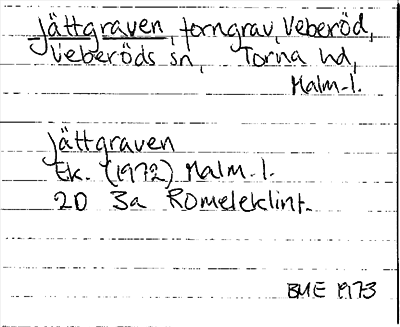 Jättgraven, forngrav, Veberöd,
Veberöds sn, Torna hd,
Malm. l.
Jättgraven
Ek. (1972) Malm. l.
2D 3a Romeleklint.
BME 1973